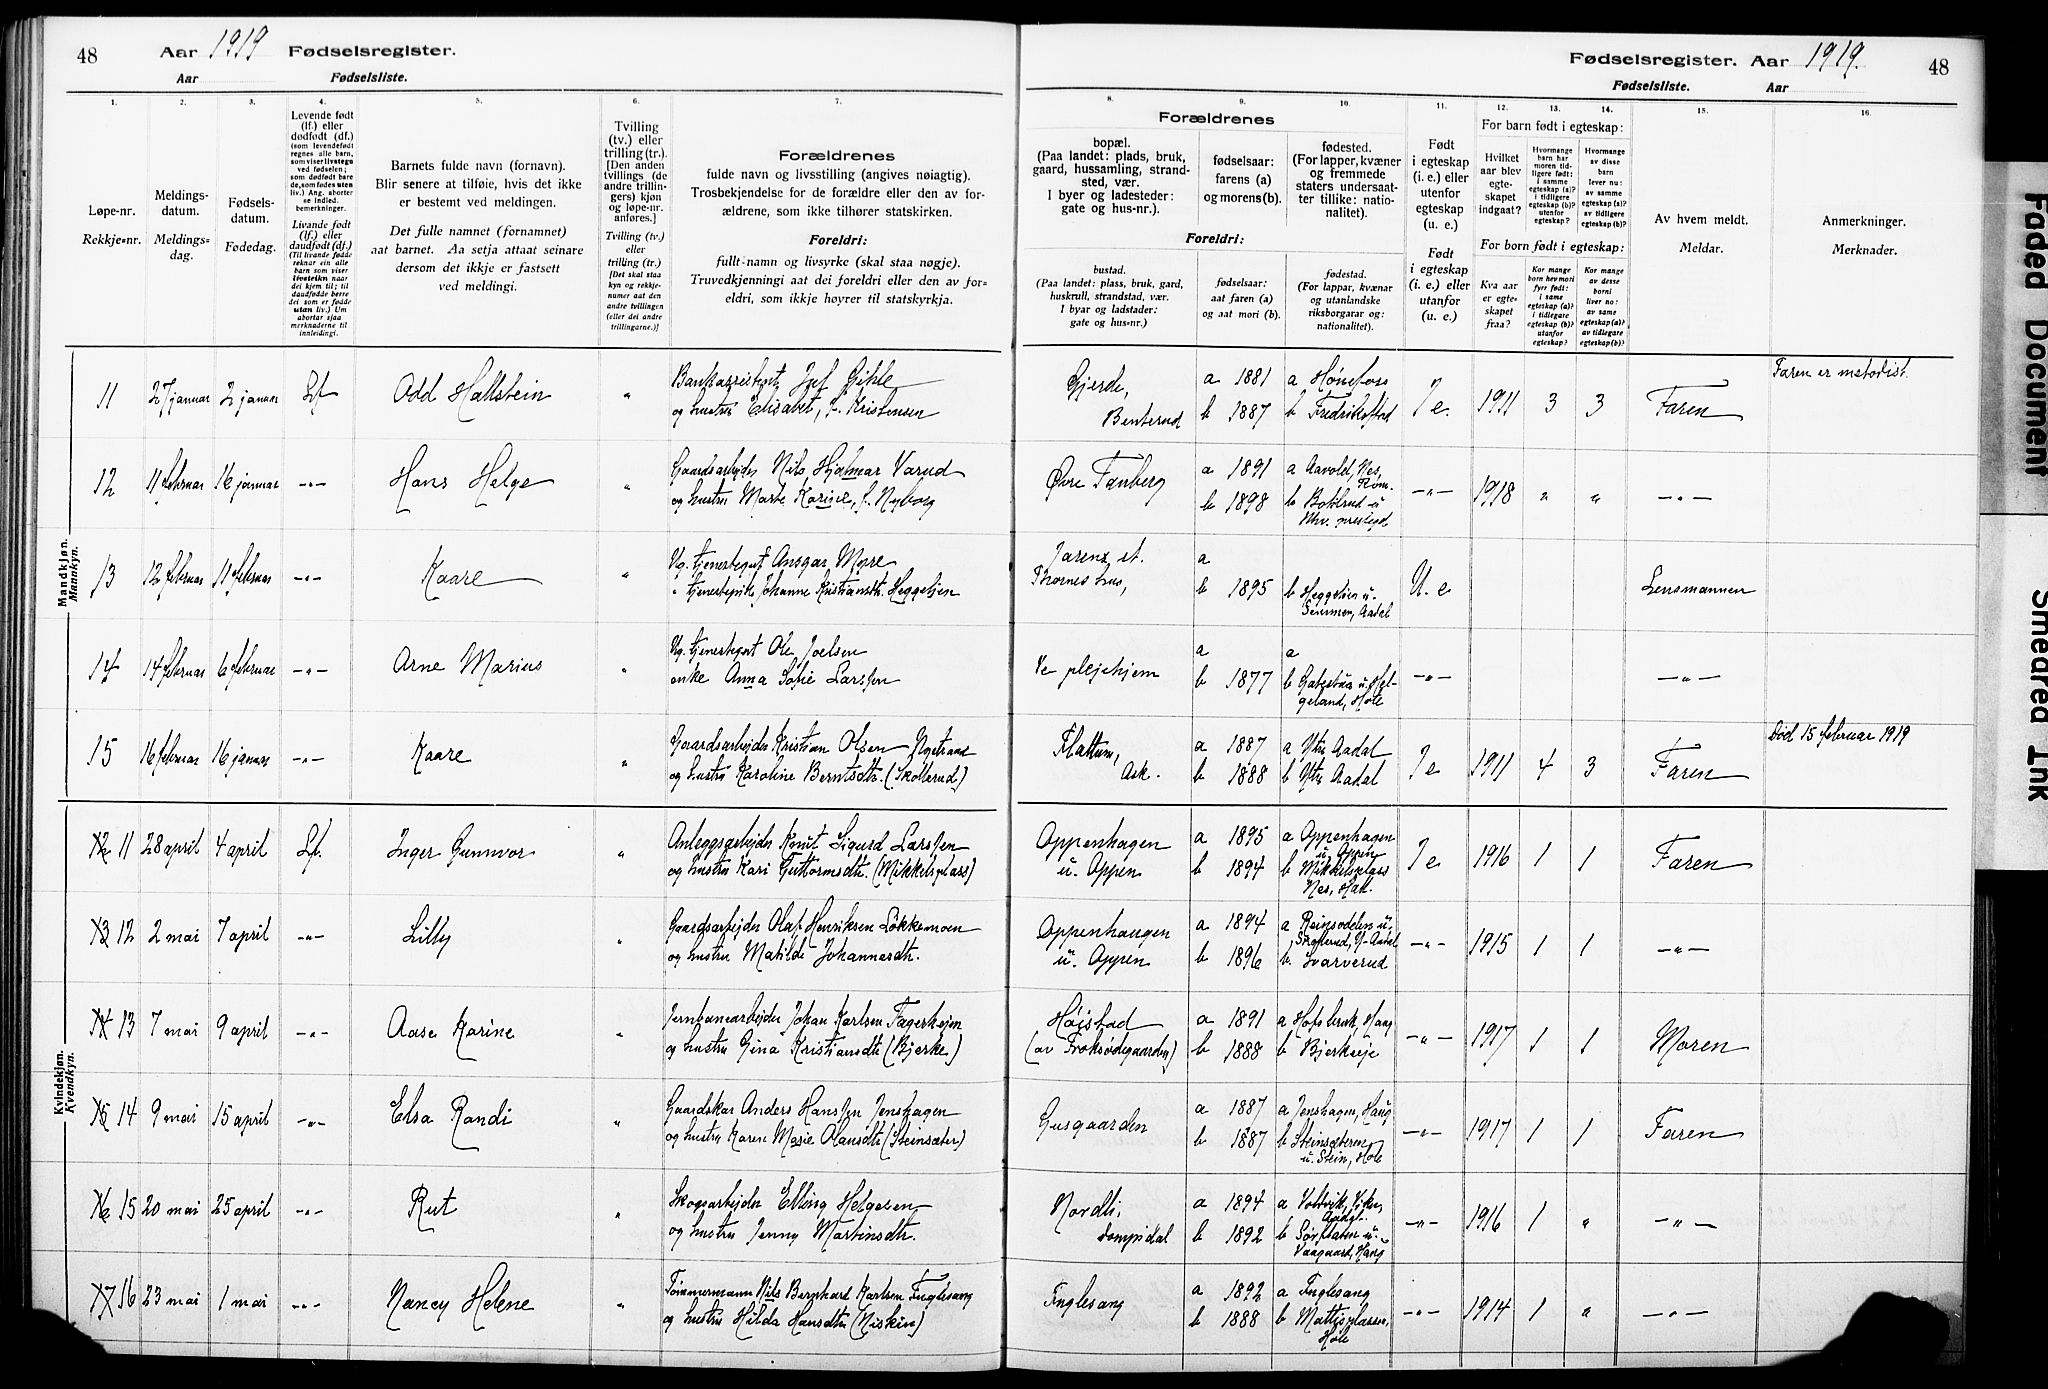 48 Aar 1919 Fødselsregister.
Aar Fødselsliste.
Fødselsregister. Aar 1919. 48
Fødselsliste. Aar
1. 2. 3. 4. 5. 6. 7. 8. 9. 10. 11. 12. 13. 14. 15. 16.
Løpe-nr.
Rekkje=nr.
Meldings-
datum.
Meldings=
dag.
Fødsels-
datum.
Fødedag.
Levende født
(lf.) eller
dødfødt (df.)
(som levendefødt
regnes alle barn,
som viser livstegn
ved fødselen;
som dødfødt bare
de, som fødes uten
liv.) Ang. aborter
se indled.
bemerkninger.
Livande født
(lf.) eller
daudfødt (df.)
(Til livande fødde
reknar ein alle
barn som viser
livsteikn naar
dei kjem til; til
daudfødde berre
dei som er fødde
utan liv.) Um
abortar sjaa
merknaderne til
innleidingi.
Barnets fulde navn (fornavn).
Blir senere at tilføie, hvis det ikke
er bestemt ved meldingen.
Det fulle namnet (fornamnet)
aat barnet. Aa setja attaat seinare
dersom det ikkje er fastsett
ved meldingi.
Tvilling
(tv.) eller
trilling (tr.).
[Den anden
tvillings (de
andre trillin-
gers) kjøn
og løpe-nr.
anføres.]
Tvilling (tv.)
eller
trilling (tr.)
[Det skal staa
kyn og rekkje-
numer aat den
andre tvillingen
(eller dei andre
trillingarne.)]
Forældrenes
fulde navn og livsstilling (angives nøiagtig).
Trosbekjendelse for de forældre eller den av for-
ældrene, som ikke tilhører statskirken.
Foreldri:
fullt-namn og livsyrke (skal staa nøgje).
Truvedkjenningi aat dei foreldri eller den av for=
eldri, som ikkje høyrer til statskyrkja.
Forældrenes
bopæl.
(Paa landet: plads, bruk,
gaard, hussamling, strand-
sted, vær.
I byer og ladesteder:
gate og hus-nr.).
fødselsaar:
farens (a)
og morens (b).
fødested.
(For lapper, kvæner
og fremmede
staters undersaat-
ter tillike: natio-
nalitet).
Foreldri:
bustad.
(Paa landet: plass, bruk, gard,
huskrull, strandstad, vær.
I byar og ladstader:
gate og hus=nr.)
fødselsaar:
aat faren (a)
og aat mori (b).
fødestad.
(For lappar, kvænar
og utanlandske
riksborgarar og:
nationalitet).
Født
i egteskap
(i. e.) eller
utenfor
egteskap
(u. e.)
Født
i egteskap
(i. e.) eller
utanfor
(u. e.)
For barn født i egteskap:
Hvilket
aar blev
egte-
skapet
indgaat?
Hvormange
barn har
moren tid-
ligere født:
i samme
egteskap (a)?
i tidligere
egteskap (b)?
utenfor
egteskap?
Hvormange
av disse
barn
lever nu:
av samme
egteskap (a)?
av tidligere
egteskap (b)?
For born født i egteskap:
Kva aar
er egte-
skapet
fraa?
Kor mange
born hev mori
fyrr født:
i same
egteskap (a)?
i tidlegare
egteskap (b)?
utanfor
egteskap?
Kor mange
av desse
borni
liver no:
av same
egteskap (a)?
av tidlegare
egteskap (b)?
Av hvem meldt.
Meldar.
Anmerkninger.
Merknader.
Mandkjøn.
Mannkyn.
11 27 januar 2 januar Lf Odd Hallstein " Bankassistent Gihle
og hustru Elisabet, f. Kristensen
Gjerde, Benterud a 1881 b 1887 a Hønefoss b Fredrikstad I e. 1911 3 3 Faren Faren er metodist.
12 11 februar 16 januar -"- Hans Helge " Gaardsarbejder Nils Hjalmar Varud
og hustru Marte Karine, f. Nyborg
Øvre Tanberg a 1891 b 1898 a Aavold, Nes, Rom. -"- 1918 " " -"-
13 12 februar 11 februar -"- Kaare " Ug. tjenestegut Ansgar More
" tjenestepike Johanne Kristiansdtr. Heggelien
Thornes hus, a b 1895 b Heggelien u. Aadal U. e Lensmannen
14 14 februar 6 februar -"- Arne Marius " Ug. tjenestegut Ole Joelsen
enke Anna Sofie Larssen
Ve plejehjem a b 1877 a b u. Helgeland, Hole -"- -"-
15 16 februar 16 januar -"- Kaare " Gaardsarbejder Kristian Olsen Nystrand
og hustru Karoline Berntsdtr. (Skollerud)
Flattum, Ask. a 1887 b 1888 a Ytre Aadal b Ytre Aadal I e 1911 4 3 Faren Død 15 februar 1919
Kvindekjøn.
Kvendkyn.
12 11 28 april 4 april Lf. Inger Gunnvor " Anleggsarbejder Knut Sigurd Larssen
og hustru Kari Guttormsdtr. (Mikkelsplass)
Oppenhagen u. Oppen a 1895 b 1894 a Oppenhagen u. Oppen b Mikkelsplass Nes, Hal. I e 1916 1 1 Faren
13 12 2 mai 7 april -"- Lilly " Gaardsarbejder Olaf Henriksen Løkkemoen
og hustru Matilde Johannesdtr.
Oppenhaugen u. Oppen a 1894 b 1896 b. Svarverud -"- 1915 1 1 -"-
14 13 7 mai 9 april -"- Aase Karine " Jernbanearbejder Johan Karlsen Fagerhejen
og hustru Gina Kristiansdtr (Bjerke)
Høistad (av Froksødegaarden) a 1891 b 1888 a Hofsbruk, Haug b Bjerkeeje -"- 1917 1 1 Moren
15 14 9 mai 15 april -"- Elsa Randi " Gaardskar Anders Hanssen Jenshagen
og hustru Karen Marie Olausdtr (Steinsæter)
Gusgaarden a 1887 b 1887 a Jenshagen, Haug b Steinsæteren u. Stein, Hole -"- 1917 1 1 Faren
16 15 20 mai 25 april -"- Rut " Skogsarbejder Elling Helgesen
og hustru Jenny Martinsdtr.
Nordli, Sompidal a 1894 b 1892 a Viker, Aadal. b u. Vaagaard, Haug -"- 1916 1 " -"-
17 16 23 mai 1 mai -"- Nancy Helene " Tømmermann Nils Bernhard Karlsen Fuglesang
og hustru Hilda Hansdtr (Niskin)
Fuglesang a 1892 b 1888 a Fuglesang b Mattisplassen, Hole -"- 1914 1 " -"-
Faded Document
Smeared Ink